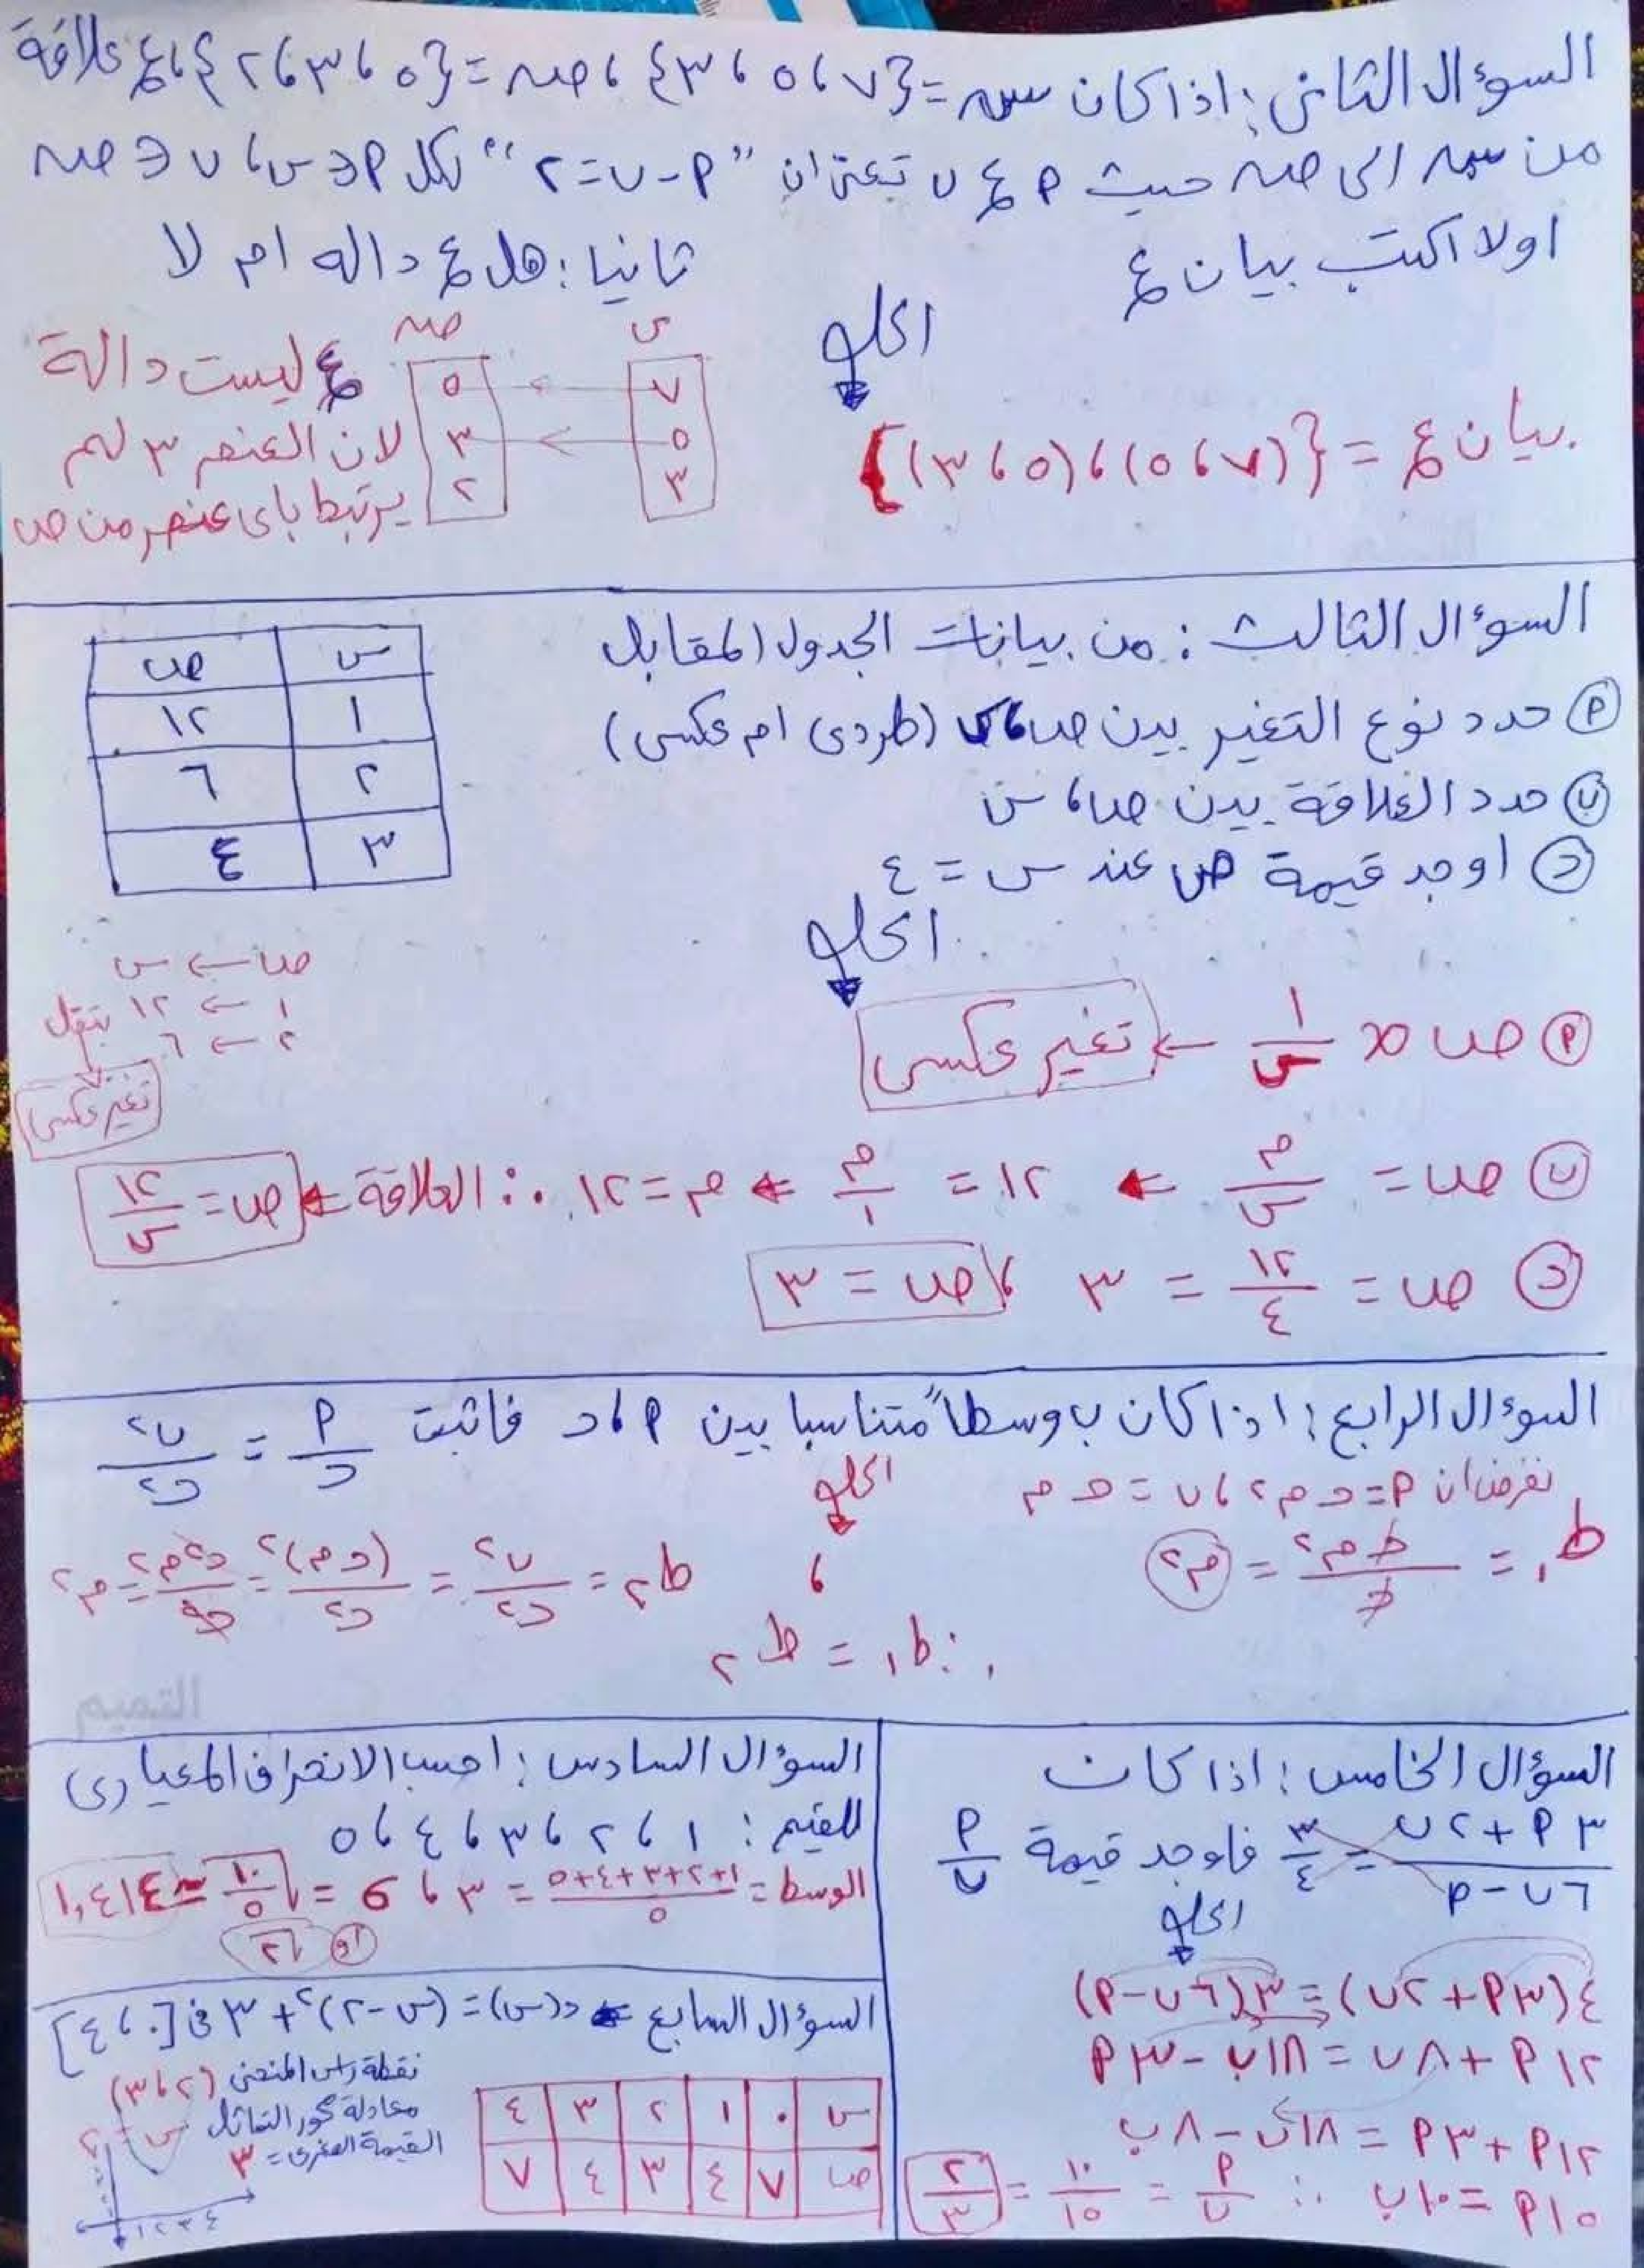 السؤال الثانى : اذا كان س = {٧ ، ٥ ، ٣} ، ص = {٥ ، ٣ ، ٢} ، ع علاقة
من س الى ص حيث أ ع ب تعنى ان "أ - ب = ٢" لكل أ ∈ س ، ب ∈ ص
اولا اكتب بيان ع
ثانيا : هل ع داله ام لا
الحل
بيان ع = {(٧ ، ٥) ، (٥ ، ٣)}
س ص
٧ ← ٥
٥ ← ٣
٣ ٢
ع ليست دالة
لان العنصر ٣ لم
يرتبط باى عنصر من ص
السؤال الثالث : من بيانات الجدول المقابل
أ حدد نوع التغير بين ص ، س (طردى ام عكسى)
ب حدد العلاقة بين ص ، س
ج اوجد قيمة ص عند س = ٤
س ص
١ ١٢
٢ ٦
٣ ٤
الحل
ص ← س
١ ← ١٢ بتقل
٢ ← ٦
تغير عكسى
أ ص ∝ ١/س ← تغير عكسى
ب ص = م/س ← ١٢ = م/١ ← م = ١٢ ∴ العلاقة ← ص = ١٢/س
ج ص = ١٢/٤ = ٣ ، ص = ٣
السؤال الرابع : اذا كان ب وسطاً متناسبا بين أ ، ج فاثبت أ/ج = ب٢/ج٢
الحل
نفرض ان أ = ج م٢ ، ب = ج م
ط١ = ج م٢/ج = م٢ ، ط٢ = ب٢/ج٢ = (ج م)٢/ج٢ = ج٢م٢/ج٢ = م٢
∴ ط١ = ط٢
التميم
السؤال الخامس : اذا كان
٣أ + ٢ب/٦ب - أ = ٣/٤ فاوجد قيمة أ/ب
الحل
٤(٣أ + ٢ب) = ٣(٦ب - أ)
١٢أ + ٨ب = ١٨ب - ٣أ
١٢أ + ٣أ = ١٨ب - ٨ب
١٥أ = ١٠ب ∴ أ/ب = ١٠/١٥ = ٢/٣
السؤال السادس : احسب الانحراف المعيارى
للقيم : ١ ، ٢ ، ٣ ، ٤ ، ٥
الوسط = ١+٢+٣+٤+٥/٥ = ٣ ، σ = √١٠/٥ = ١,٤١٤
او √٢
السؤال السابع ← د(س) = (س - ٢)٢ + ٣ فى [٠ ، ٤]
س ٠ ١ ٢ ٣ ٤
ص ٧ ٤ ٣ ٤ ٧
نقطة راس المنحنى (٢ ، ٣)
معادلة محور التماثل س = ٢
القيمة الصغرى = ٣
١ ٢ ٣ ٤